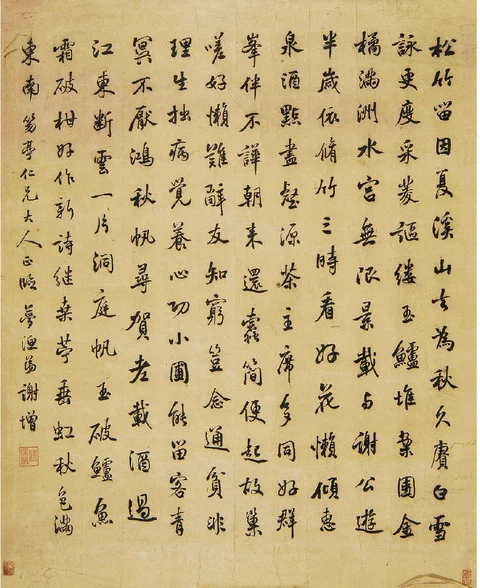 松竹留因夏溪山去為秋久賡白雪
詠更度采菱謳縷玉鱸堆案團金
橘滿洲水宮無限景載与謝公遊
半歲依脩竹三時看好花懶傾惠
泉酒點盡壑源茶主席多同好群
峯伴不譁朝来還蠹簡便起故巢
嗟好懶難辭友知窮豈念通貧非
理生拙病覺養心功小圃能留客青
冥不厭鴻秋帆尋賀老載酒過
江東断雲一片洞庭帆玉破鱸魚
霜破柑好作新詩継桑苧垂虹秋色滿
東南 笏亭仁兄大人正臨 夢漁弟謝增